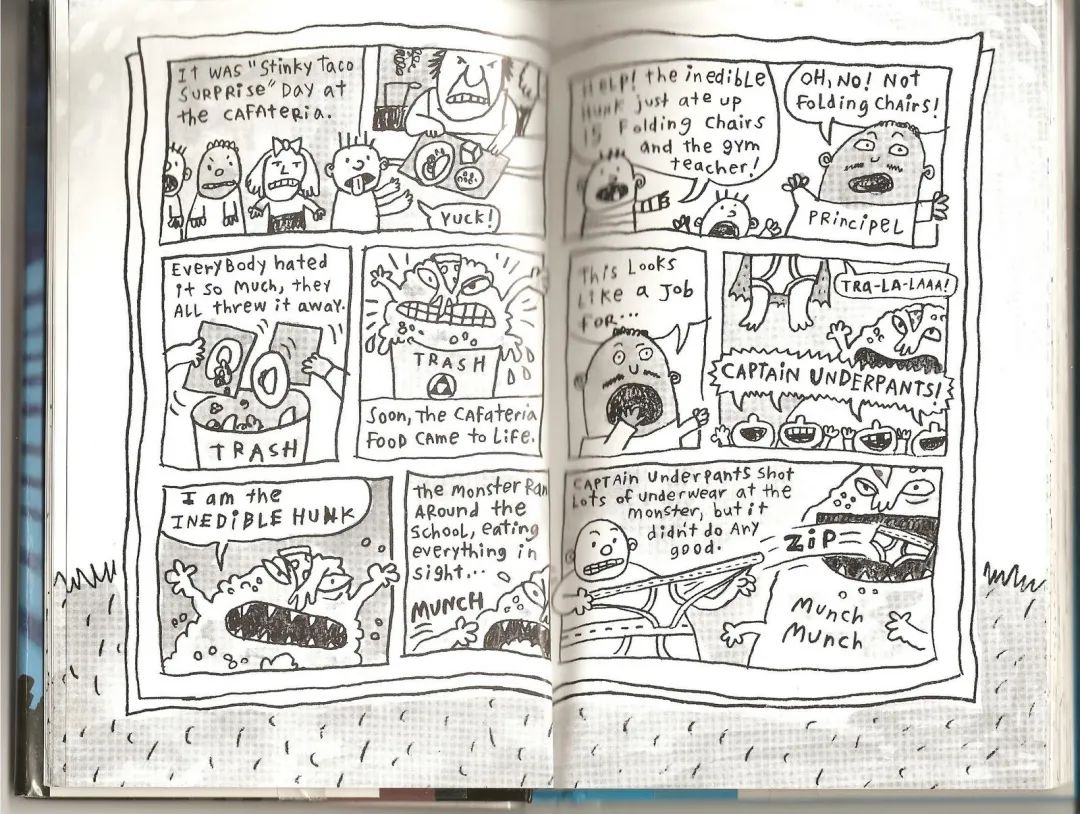 It was "Stinky Taco
Surprise" Day at
the cafateria.
Yuck!
Everybody hated
it so much, they
all threw it away.
TRASH
TRASH
Soon, the cafateria
food came to life.
I am the
INEDIBLE HUNK
The monster ran
around the
school, eating
everything in
sight...
MUNCH
HELP! the inedible
Hunk just ate up
15 Folding Chairs
and the gym
teacher!
OH, NO! Not
Folding Chairs!
PRINCIPEL
This Looks
Like a Job
for...
TRA-LA-LAAA!
CAPTAIN UNDERPANTS!
Captain Underpants shot
Lots of underwear at the
monster, but it
didn't do any
good.
ZIP
Munch
Munch